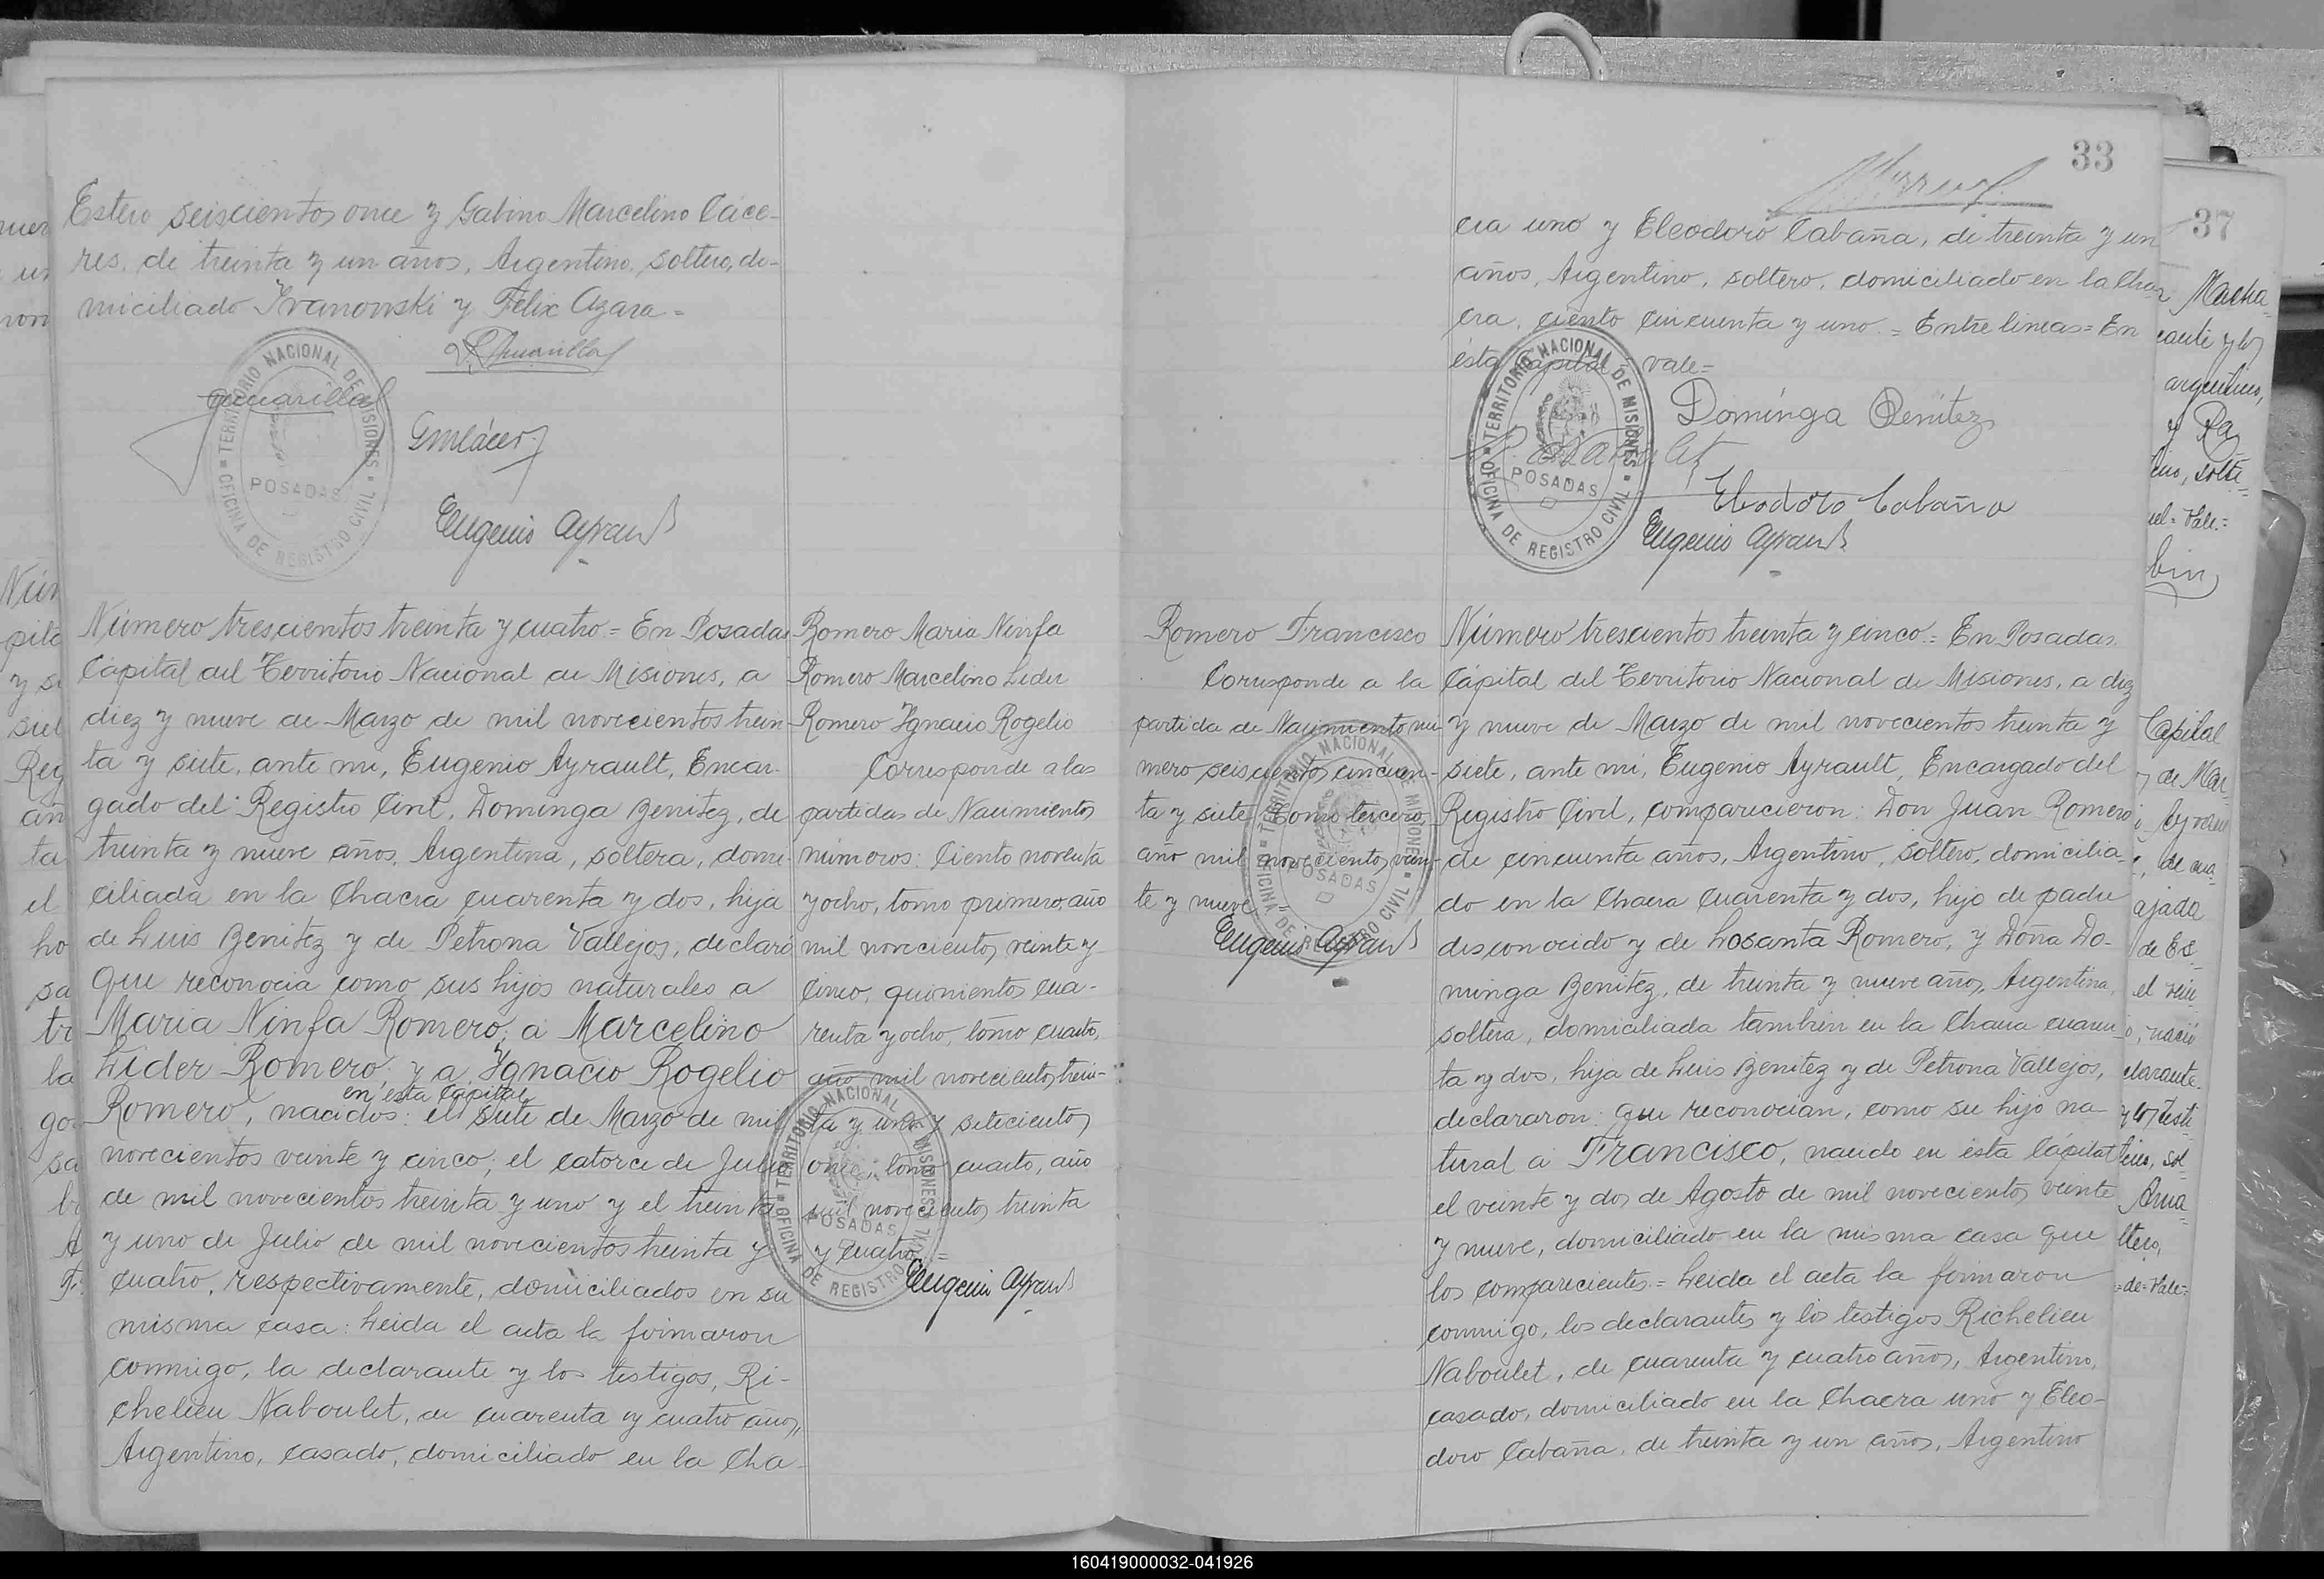 Estero seiscientos once y Gabino Marcelino Cáce-
res, de treinta y un años, Argentino, soltero, do-
miciliado Yvanowski y Félix Azara=
TERRITORIO NACIONAL DE MISIONES
POSADAS
OFICINA DE REGISTRO CIVIL
Eugenio Ayrault
Número trescientos treinta y cuatro= En Posadas
Cápital del Territorio Nacional de Misiones, a
diez y nueve de Marzo de mil novecientos trein
ta y siete, ante mi, Eugenio Ayrault, Encar-
gado del Registro Civil, Dominga Benitez, de
treinta y nueve años, Argentina, soltera, domi-
ciliada en la Chacra cuarenta y dos, hija
de Luis Benitez y de Petrona Vallejos, declaró
que reconocia como sus hijos naturales a
Maria Ninfa Romero; a Marcelino
Lider Romero; y a Ygnacio Rogelio
en esta Cápital
Romero, nacidos: el siete de Marzo de mil
novecientos veinte y cinco; el catorce de Julio
de mil novecientos treinta y uno y el treinta
y uno de Julio de mil novecientos treinta y
cuatro, respectivamente, domiciliados en su
misma casa: Leida el acta la firmaron
conmigo, la declarante y los testigos, Ri-
chelieu Naboulet, de cuarenta y cuatro años,
Argentino, casado, domiciliado en la Cha-
Romero Maria Ninfa
Romero Marcelino Lider
Romero Ygnacio Rogelio
Corresponde a las
partidas de Nacimientos
números: Ciento noventa
y ocho, tomo primero, año
mil novecientos veinte y
cinco, quinientos cua-
renta y ocho, tomo cuarto,
año mil novecientos trein-
ta y uno y setecientos
once, tomo cuarto, año
mil novecientos treinta
y cuatro=
TERRITORIO NACIONAL DE MISIONES
POSADAS
OFICINA DE REGISTRO CIVIL
Eugenio Ayrault
33
cra uno y Eleodoro Cabaña, de treinta y un
años, Argentino, soltero, domiciliado en la Cha-
cra, ciento cincuenta y uno.= Entre lineas= En
ésta Cápital= vale=
TERRITORIO NACIONAL DE MISIONES
POSADAS
OFICINA DE REGISTRO CIVIL
Dominga Benitez
Eleodoro Cabaña
Eugenio Ayrault
Romero Francisco
Corresponde a la
partida de Nacimiento nu
mero seiscientos cincuen-
ta y siete, Tomo tercero,
año mil novecientos vein-
te y nueve
TERRITORIO NACIONAL DE MISIONES
POSADAS
OFICINA DE REGISTRO CIVIL
Eugenio Ayrault
Número trescientos treinta y cinco.= En Posadas,
Cápital del Territorio Nacional de Misiones, a diez
y nueve de Marzo de mil novecientos treinta y
siete, ante mi, Eugenio Ayrault, Encargado del
Registro Civil, comparecieron: Don Juan Romero
de cincuenta años, Argentino, soltero, domicilia-
do en la Chacra cuarenta y dos, hijo de padre
desconocido y de Losanta Romero, y Doña Do-
minga Benitez, de treinta y nueve años, Argentina,
soltera, domiciliada tambien en la Chacra cuaren-
ta y dos, hija de Luis Benitez y de Petrona Vallejos,
declararon: que reconocian, como su hijo na-
tural a Francisco, nacido en ésta Cápital
el veinte y dos de Agosto de mil novecientos veinte
y nueve, domiciliado en la misma casa que
los comparecientes.= Leida el acta la firmaron
conmigo, los declarantes y los testigos Richelieu
Naboulet, de cuarenta y cuatro años, Argentino,
casado, domiciliado en la Chacra uno y Eleo-
doro Cabaña, de treinta y un años, Argentino
37
160419000032-041926